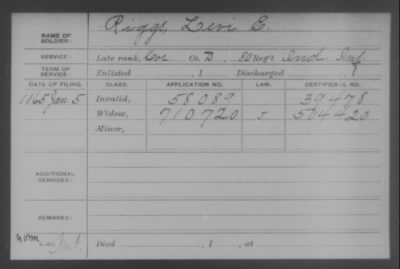 NAME OF SOLDIER: Riggs, Levi E.
SERVICE: Late rank, Cor Co. D, 50 Reg't Ind Inf
TERM OF SERVICE: Enlisted , 1 Discharged , 1
DATE OF FILING. CLASS. APPLICATION NO. LAW. CERTIFICATE NO.
1865 Jan 5 Invalid, 58089 39478
Widow, 710720 504420
Minor,
ADDITIONAL SERVICES:
REMARKS:
Died , 1 , at